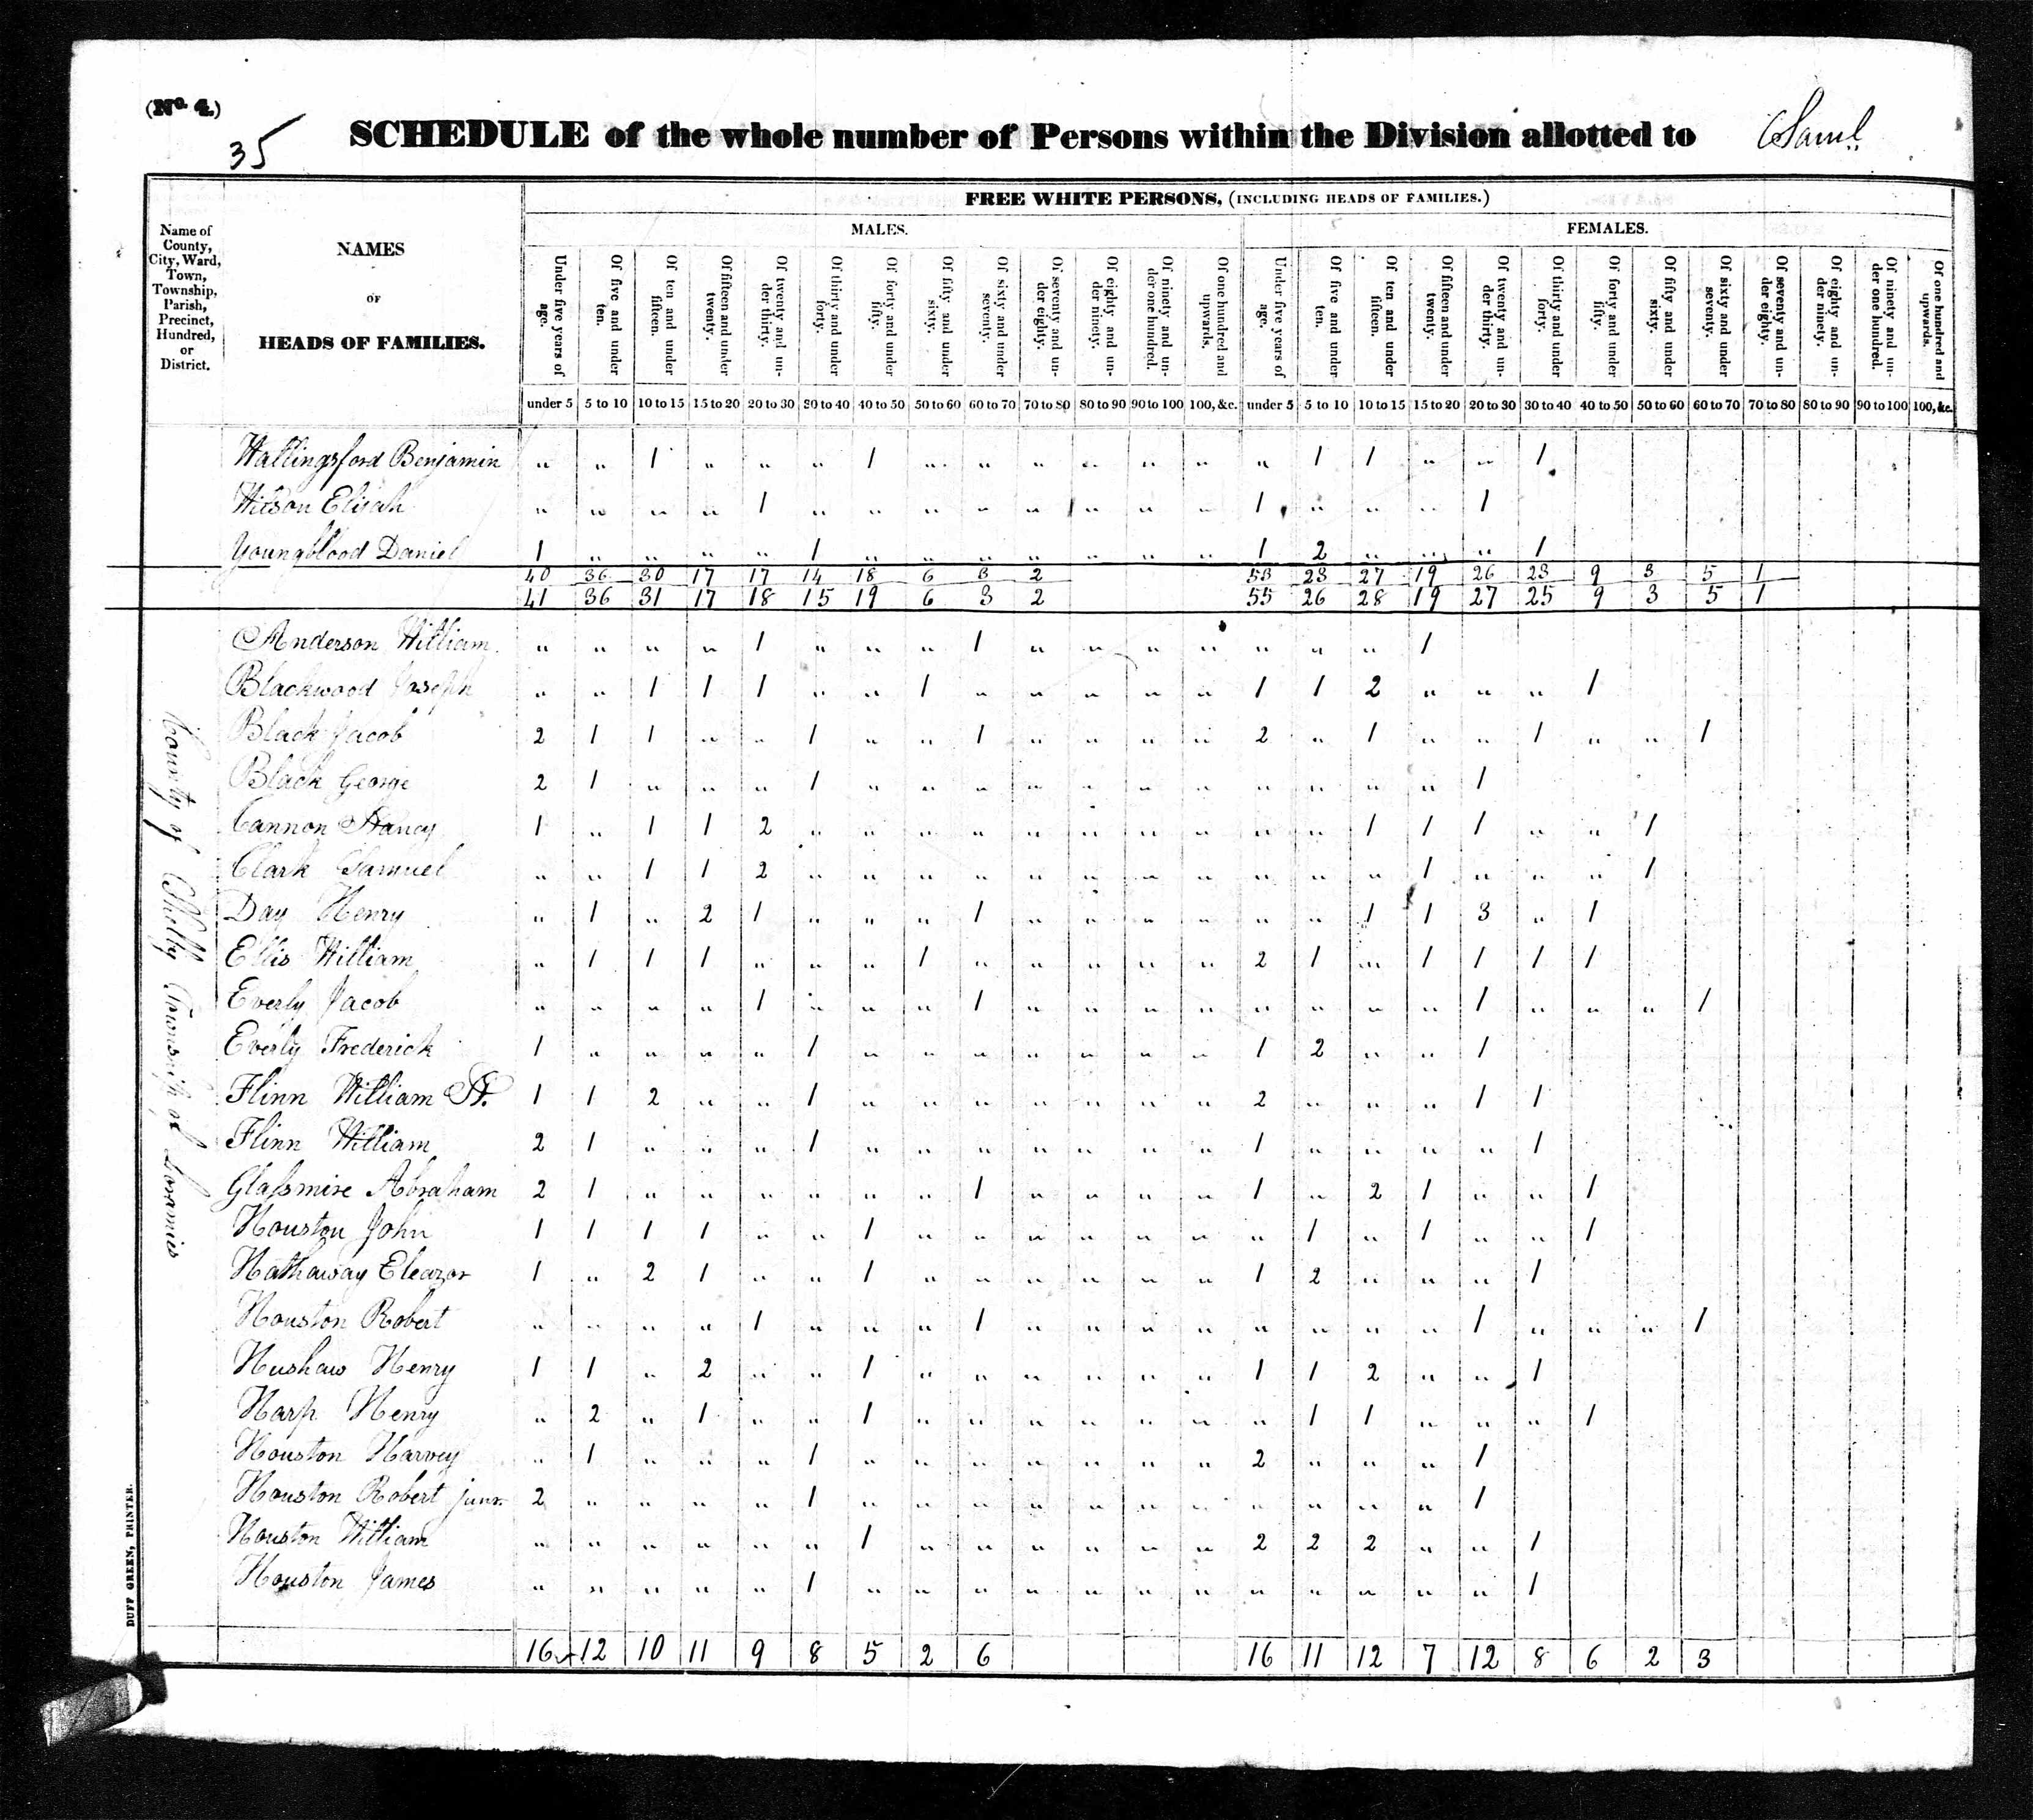 (No. 4.)
35
SCHEDULE of the whole number of Persons within the Division allotted to Saml.
FREE WHITE PERSONS, (INCLUDING HEADS OF FAMILIES.)
MALES. FEMALES.
Name of County, City, Ward, Town, Township, Parish, Precinct, Hundred, or District.
NAMES
OF
HEADS OF FAMILIES.
Under five years of age.
Of five and under ten.
Of ten and under fifteen.
Of fifteen and under twenty.
Of twenty and under thirty.
Of thirty and under forty.
Of forty and under fifty.
Of fifty and under sixty.
Of sixty and under seventy.
Of seventy and under eighty.
Of eighty and under ninety.
Of ninety and under one hundred.
Of one hundred and upwards.
Under five years of age.
Of five and under ten.
Of ten and under fifteen.
Of fifteen and under twenty.
Of twenty and under thirty.
Of thirty and under forty.
Of forty and under fifty.
Of fifty and under sixty.
Of sixty and under seventy.
Of seventy and under eighty.
Of eighty and under ninety.
Of ninety and under one hundred.
Of one hundred and upwards.
under 5 5 to 10 10 to 15 15 to 20 20 to 30 30 to 40 40 to 50 50 to 60 60 to 70 70 to 80 80 to 90 90 to 100 100, &c. under 5 5 to 10 10 to 15 15 to 20 20 to 30 30 to 40 40 to 50 50 to 60 60 to 70 70 to 80 80 to 90 90 to 100 100, &c.
Wallingsford Benjamin " " 1 " " " 1 " " " " " " " 1 1 " " 1
Wilson Elijah " " " " 1 " " " " " " " " 1 " " " 1
Youngblood Daniel 1 " " " " 1 " " " " " " " 1 2 " " " 1
40 36 30 17 17 14 18 6 3 2 53 23 27 19 26 23 9 3 5 1
41 36 31 17 18 15 19 6 3 2 55 26 28 19 27 25 9 3 5 1
County of Shelby Township of Loramies
Anderson William " " " " 1 " " " 1 " " " " " " " 1
Blackwood Joseph " " 1 1 1 " " 1 " " " " " 1 1 2 " " " 1
Black Jacob 2 1 1 " " 1 " " 1 " " " " 2 " 1 " " 1 " " 1
Black George 2 1 " " " 1 " " " " " " " " " " " 1
Cannon Nancy 1 " 1 1 2 " " " " " " " " " " 1 1 1 " " 1
Clark Samuel " " 1 1 2 " " " " " " " " " " " 1 " " " 1
Day Henry " 1 " 2 1 " " " 1 " " " " " " 1 1 3 " 1
Ellis William " 1 1 1 " " " 1 " " " " " 2 1 " 1 1 1 1
Everly Jacob " " " " 1 " " " 1 " " " " " " " " 1 " " " 1
Everly Frederick 1 " " " " 1 " " " " " " " 1 2 " " 1
Flinn William H. 1 1 2 " " 1 " " " " " " " 2 " " " 1 1
Flinn William 2 1 " " " 1 " " " " " " " 1 " " " " 1
Glassmire Abraham 2 1 " " " " " " 1 " " " " 1 " 2 1 " " 1
Houston John 1 1 1 1 " " 1 " " " " " " " 1 " 1 " " 1
Hathaway Eleazor 1 " 2 1 " " 1 " " " " " " 1 2 " " " 1
Houston Robert " " " " 1 " " " 1 " " " " " " " " 1 " " " 1
Hushaw Henry 1 1 " 2 " " 1 " " " " " " 1 1 2 " " 1
Harp Henry " 2 " 1 " " 1 " " " " " " " 1 1 " " " 1
Houston Harvey " 1 " " " 1 " " " " " " " 2 " " " 1
Houston Robert junr. 2 " " " " 1 " " " " " " " " " " " 1
Houston William " " " " " " 1 " " " " " " 2 2 2 " " 1
Houston James " " " " " 1 " " " " " " " " " " " " 1
16 12 10 11 9 8 5 2 6 16 11 12 7 12 8 6 2 3
DUFF GREEN, PRINTER.